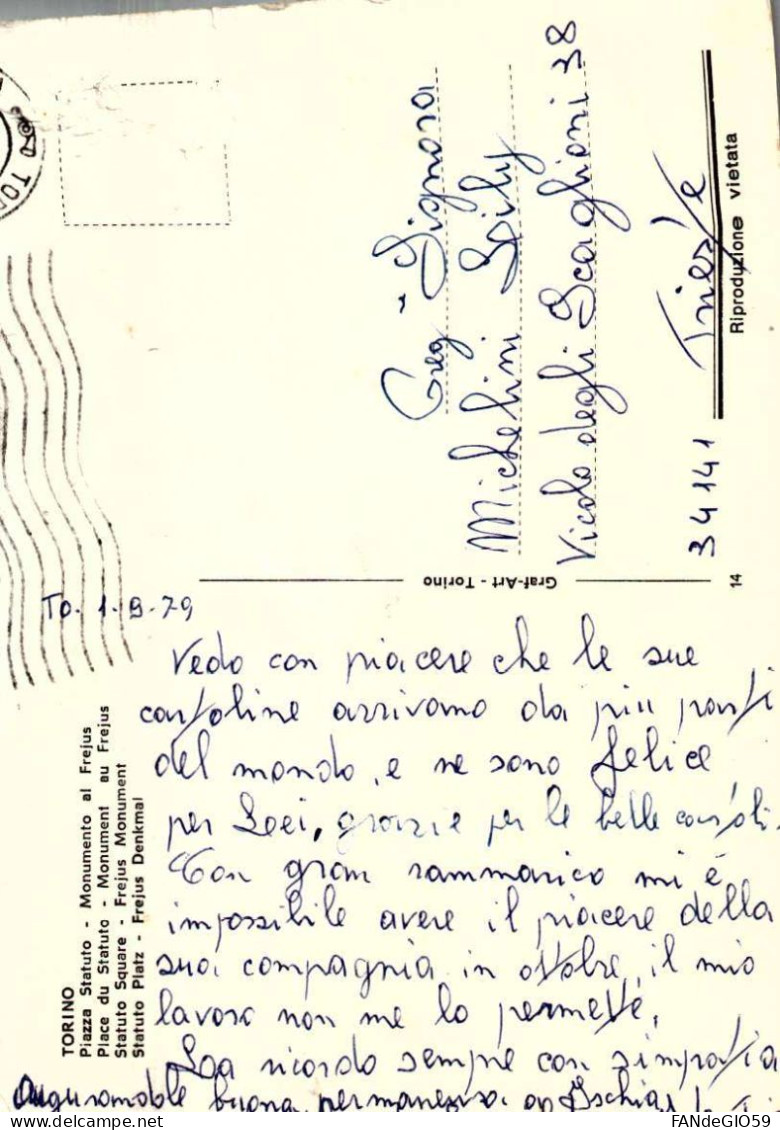 TORINO
Piazza Statuto - Monumento al Frejus
Place du Statuto - Monument au Frejus
Statuto Square - Frejus Monument
Statuto Platz - Frejus Denkmal
To. 1-9-79
Vedo con piacere che le sue
cartoline arrivano da più parti
del mondo, e ne sono felice
per Lei, grazie per le belle cartoli.
Con gran rammarico mi è
impossibile avere il piacere della
sua compagnia in ottobre, il mio
lavoro non me lo permette.
La ricordo sempre con simpatia
augurandole buona permanenza ad Ischia
Graf-Art - Torino
14
Greg. Signora
Michelini
Vicolo degli Scaglioni 38
34141 Trieste
Riproduzione vietata
TO
FANdeGIO59